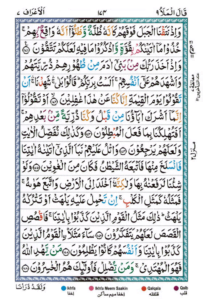 قَالَ الْمَلَاُ ٩ ١٧٣ اَلْاَعْرَاف ٧
وَاِذْ نَتَقْنَا الْجَبَلَ فَوْقَهُمْ كَاَنَّهٗ ظُلَّةٌ وَّظَنُّوْۤا اَنَّهٗ وَاقِعٌۢ بِهِمْ ۚ
خُذُوْا مَاۤ اٰتَيْنٰكُمْ بِقُوَّةٍ وَّاذْكُرُوْا مَا فِيْهِ لَعَلَّكُمْ تَتَّقُوْنَ ۝
وَاِذْ اَخَذَ رَبُّكَ مِنْۢ بَنِيْۤ اٰدَمَ مِنْ ظُهُوْرِهِمْ ذُرِّيَّتَهُمْ
وَاَشْهَدَهُمْ عَلٰۤى اَنْفُسِهِمْ ۚ اَلَسْتُ بِرَبِّكُمْ ؕ قَالُوْا بَلٰى ۛۚ شَهِدْنَا ۛۚ اَنْ
تَقُوْلُوْا يَوْمَ الْقِيٰمَةِ اِنَّا كُنَّا عَنْ هٰذَا غٰفِلِيْنَ ۝ اَوْ تَقُوْلُوْۤا
اِنَّمَاۤ اَشْرَكَ اٰبَآؤُنَا مِنْ قَبْلُ وَكُنَّا ذُرِّيَّةً مِّنْۢ بَعْدِهِمْ ۚ
اَفَتُهْلِكُنَا بِمَا فَعَلَ الْمُبْطِلُوْنَ ۝ وَكَذٰلِكَ نُفَصِّلُ الْاٰيٰتِ
وَلَعَلَّهُمْ يَرْجِعُوْنَ ۝ وَاتْلُ عَلَيْهِمْ نَبَاَ الَّذِيْۤ اٰتَيْنٰهُ اٰيٰتِنَا
فَانْسَلَخَ مِنْهَا فَاَتْبَعَهُ الشَّيْطٰنُ فَكَانَ مِنَ الْغٰوِيْنَ ۝ وَلَوْ
شِئْنَا لَرَفَعْنٰهُ بِهَا وَلٰكِنَّهٗۤ اَخْلَدَ اِلَى الْاَرْضِ وَاتَّبَعَ هَوٰىهُ ۚ
فَمَثَلُهٗ كَمَثَلِ الْكَلْبِ ۚ اِنْ تَحْمِلْ عَلَيْهِ يَلْهَثْ اَوْ تَتْرُكْهُ
يَلْهَثْ ؕ ذٰلِكَ مَثَلُ الْقَوْمِ الَّذِيْنَ كَذَّبُوْا بِاٰيٰتِنَا ۚ فَاقْصُصِ
الْقَصَصَ لَعَلَّهُمْ يَتَفَكَّرُوْنَ ۝ سَآءَ مَثَلَا ۨالْقَوْمُ الَّذِيْنَ
كَذَّبُوْا بِاٰيٰتِنَا وَاَنْفُسَهُمْ كَانُوْا يَظْلِمُوْنَ ۝ مَنْ يَّهْدِ اللّٰهُ
فَهُوَ الْمُهْتَدِيْ ۚ وَمَنْ يُّضْلِلْ فَاُولٰٓئِكَ هُمُ الْخٰسِرُوْنَ ۝
وَلَقَدْ ذَرَاْنَا